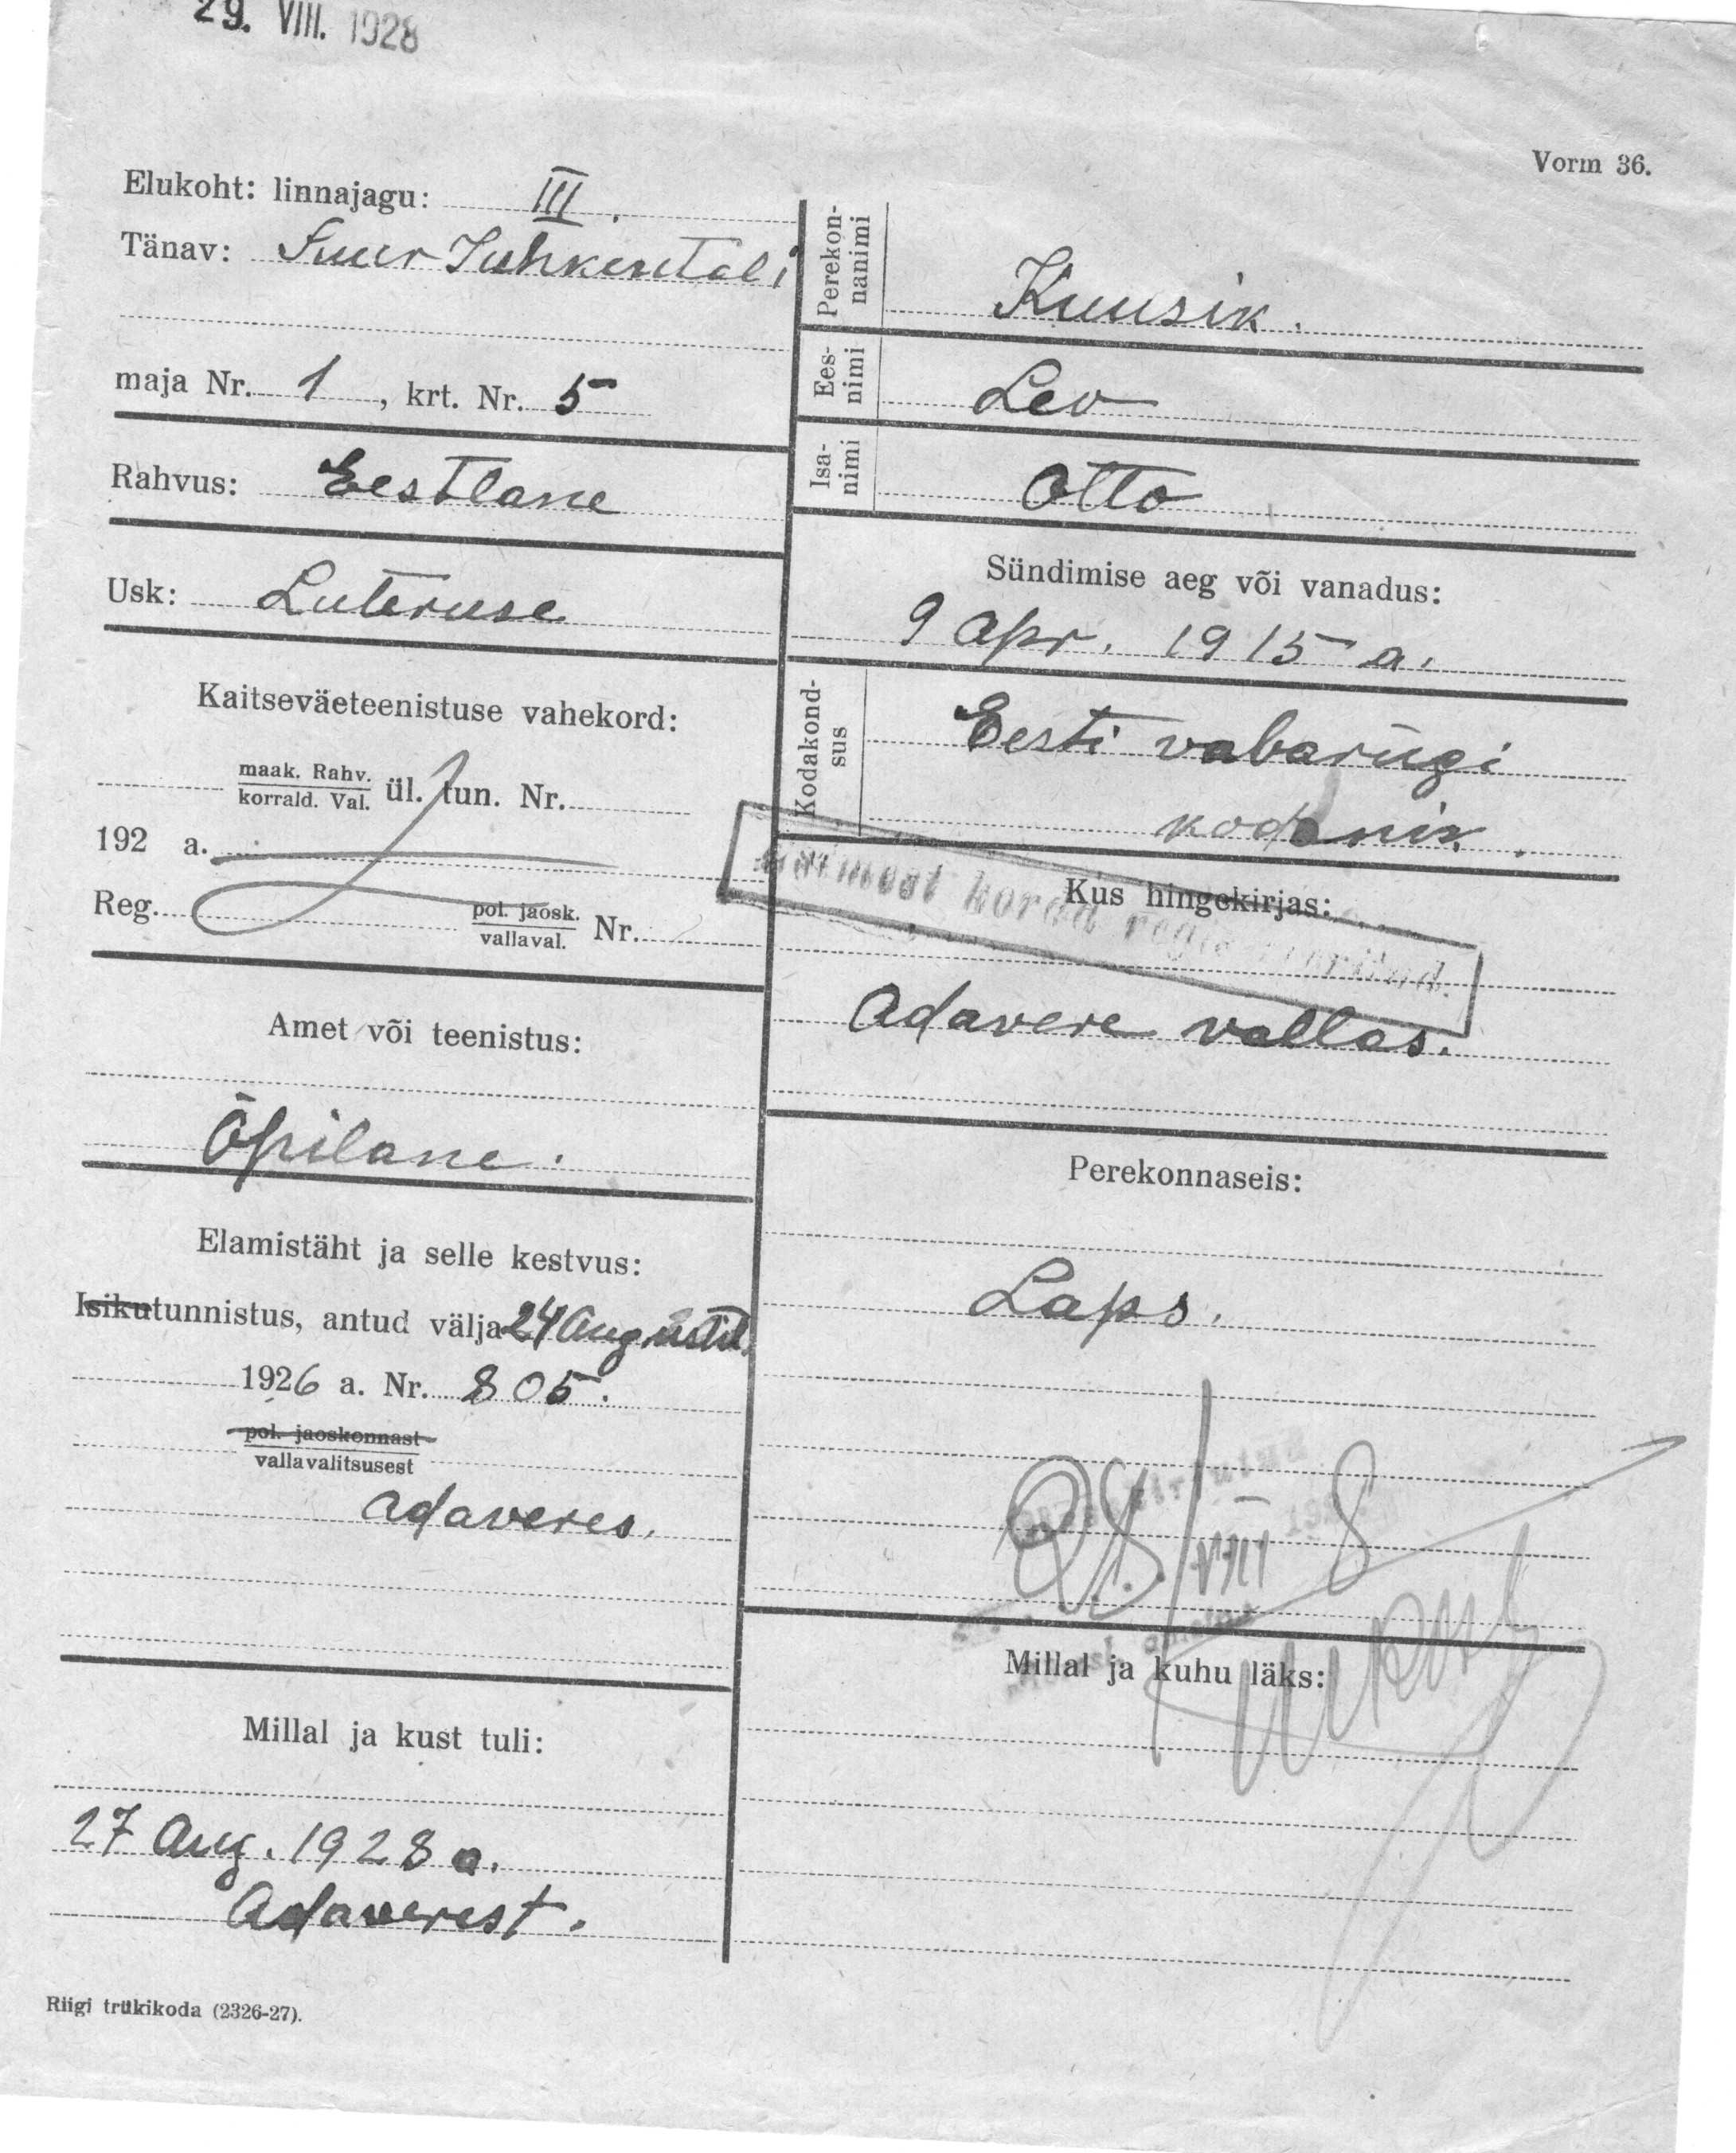 29. VIII. 1928
Vorm 36.
Elukoht: linnajagu: III.
Tänav: Suur Juhkentali
maja Nr. 1, krt. Nr. 5
Rahvus: Eestlane
Usk: Luteruse
Kaitseväeteenistuse vahekord:
maak. Rahv.
korrald. Val. ül. tun. Nr.
192 a.
Reg. pol. jaosk.
vallaval. Nr.
Amet või teenistus:
Õpilane.
Elamistäht ja selle kestvus:
Isikutunnistus, antud välja 24 Augustil.
1926 a. Nr. 805.
pol. jaoskonnast
vallavalitsusest
Adaveres.
Millal ja kust tuli:
27 Aug. 1928 a.
Adaverest.
Riigi trükikoda (2326-27).
Perekon-
nanimi
Kuusik.
Ees-
nimi
Leo
Isa-
nimi
Otto
Sündimise aeg või vanadus:
9 Apr. 1915 a.
Kodakond-
sus
Eesti vabariigi
kodanik.
Kus hingekirjas:
Esimest korda registreeritud.
Adavere vallas.
Perekonnaseis:
Laps.
28/VIII 8
Millal ja kuhu läks: